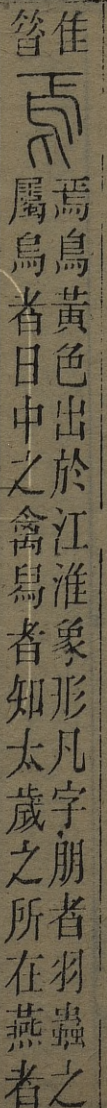 隹
㫺
焉鳥黃色出於江淮象形凡字朋者羽蟲之
屬烏者日中之禽舄者知太歲之所在燕者